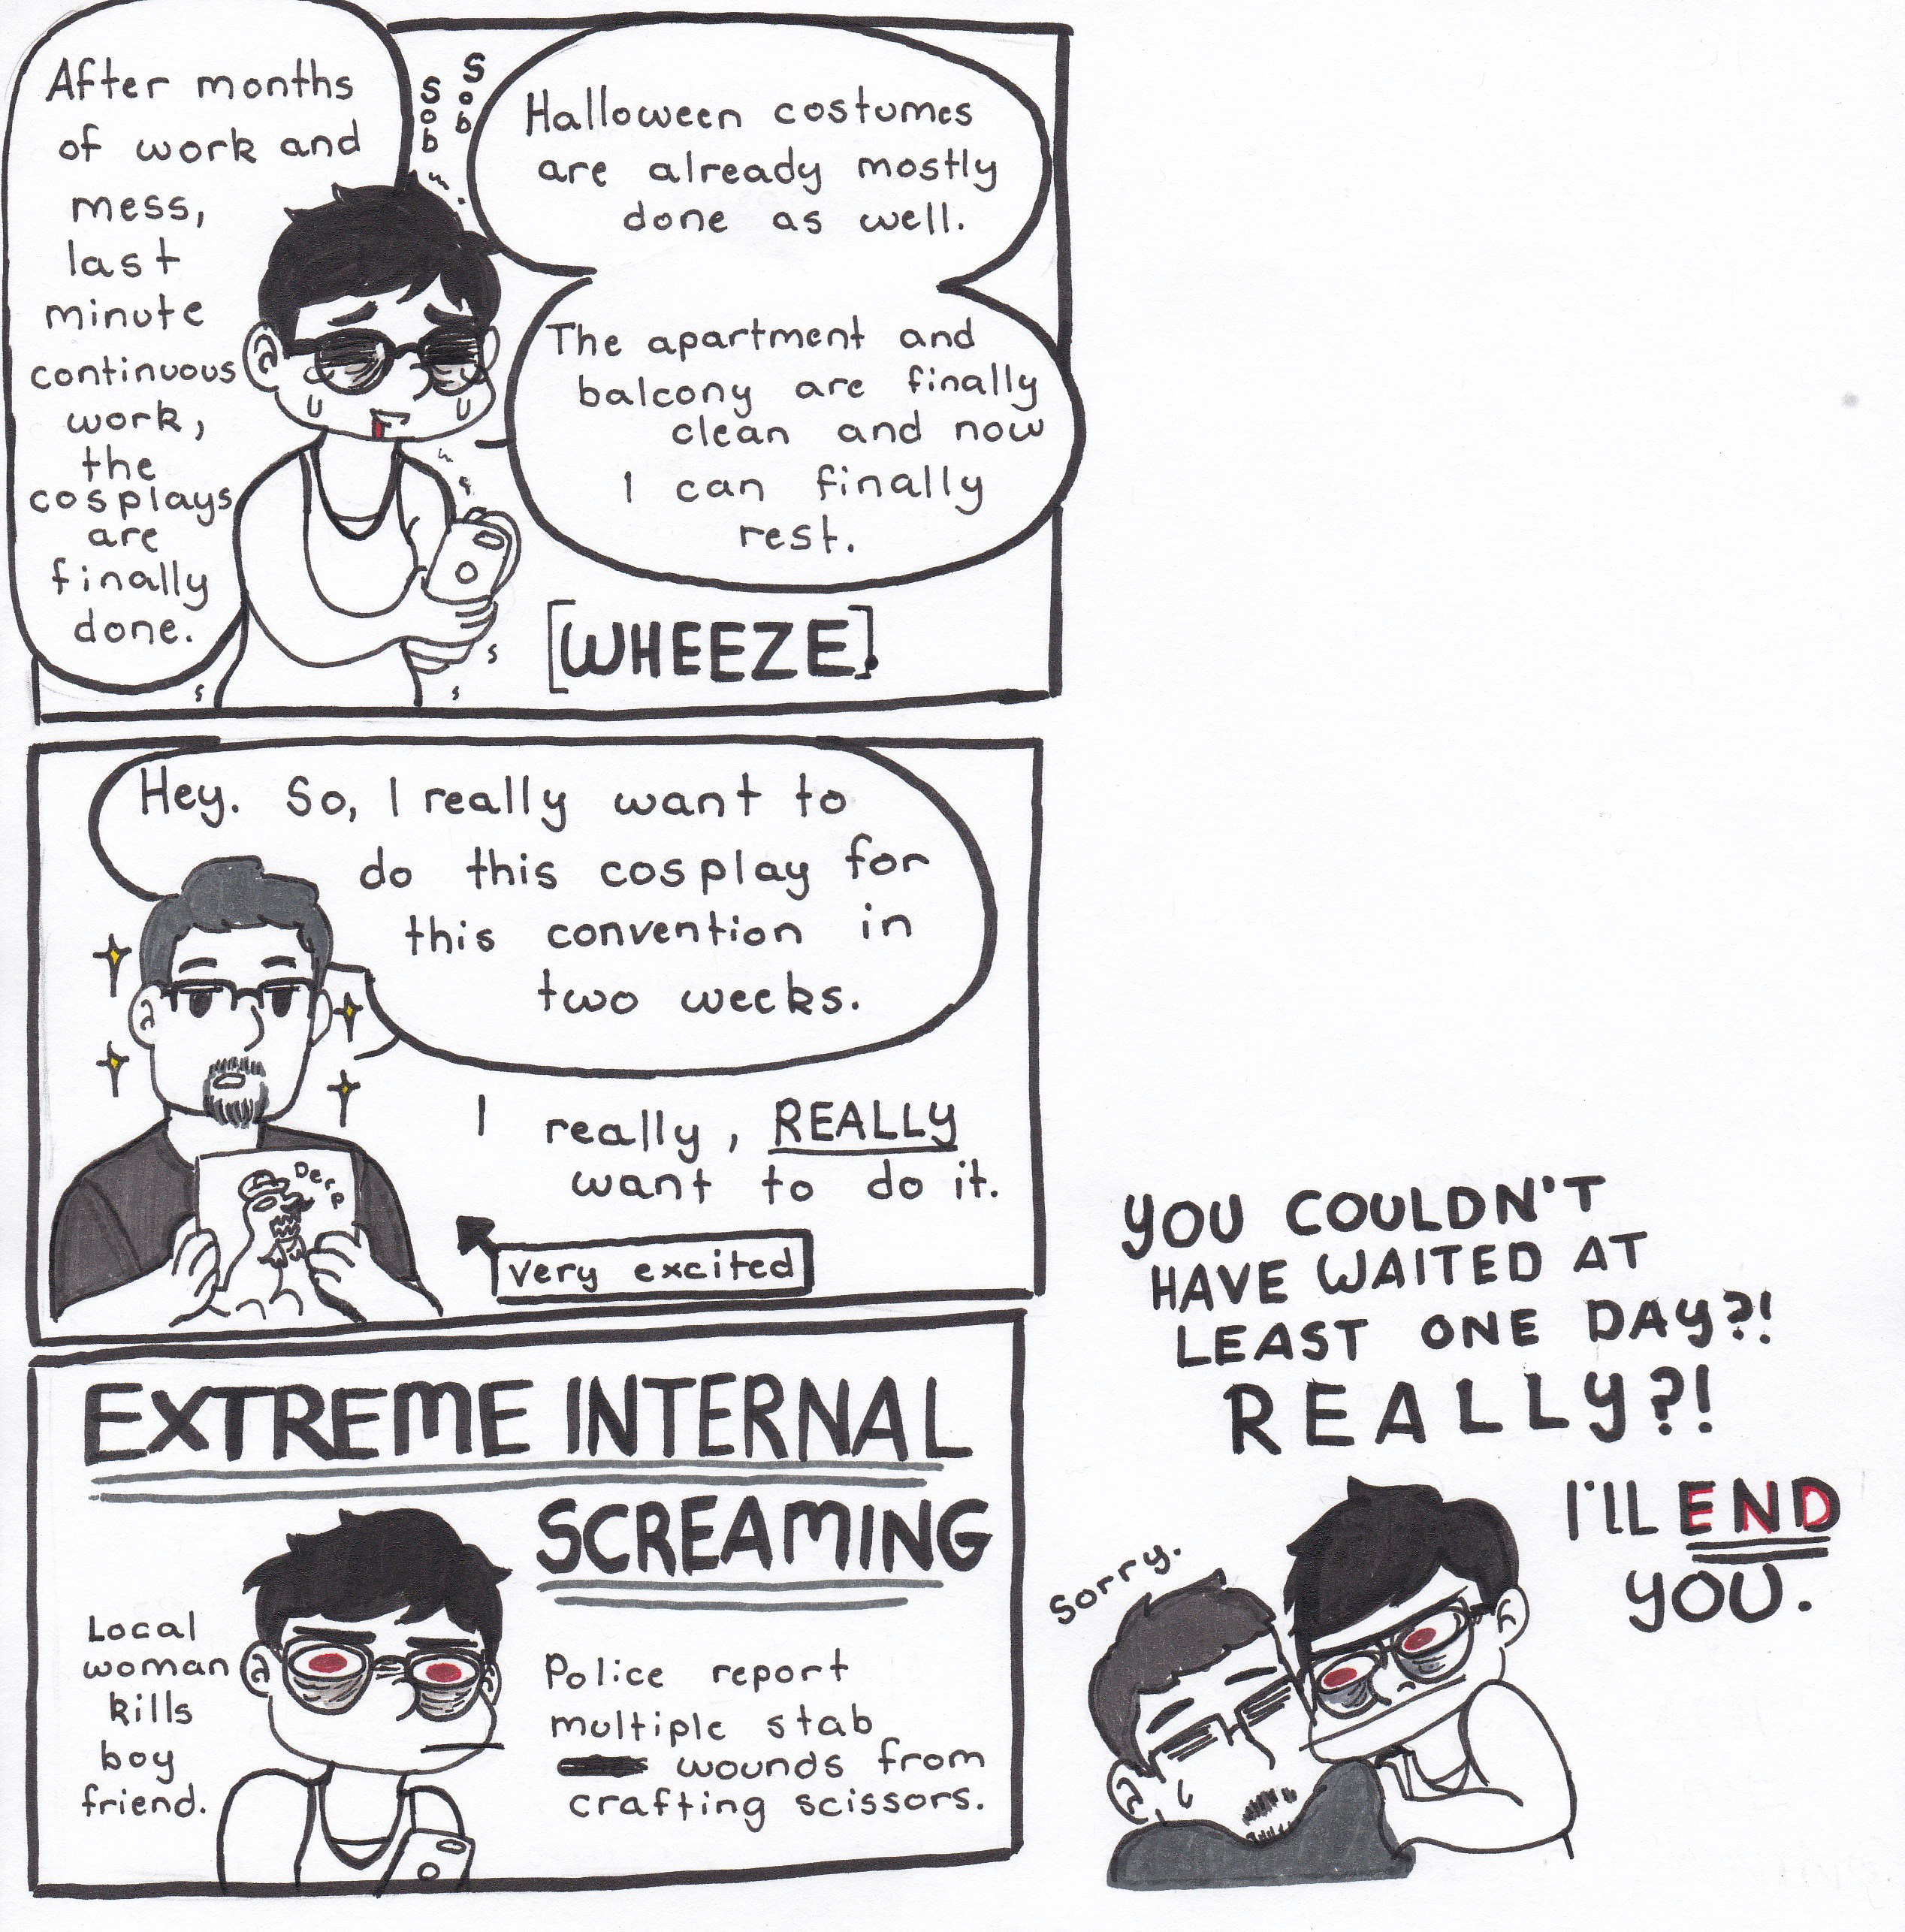 After months
of work and
mess,
last
minute
continuous
work,
the
cosplays
are
finally
done.
Sob
Sob
Halloween costumes
are already mostly
done as well.
The apartment and
balcony are finally
clean and now
I can finally
rest.
[WHEEZE].
Hey. So, I really want to
do this cosplay for
this convention in
two weeks.
I really, REALLY
want to do it.
Derp
very excited
EXTREME INTERNAL
SCREAMING
Local
woman
kills
boy
friend.
Police report
multiple stab
wounds from
crafting scissors.
YOU COULDN'T
HAVE WAITED AT
LEAST ONE DAY?!
REALLY?!
I'LL END
YOU.
Sorry.